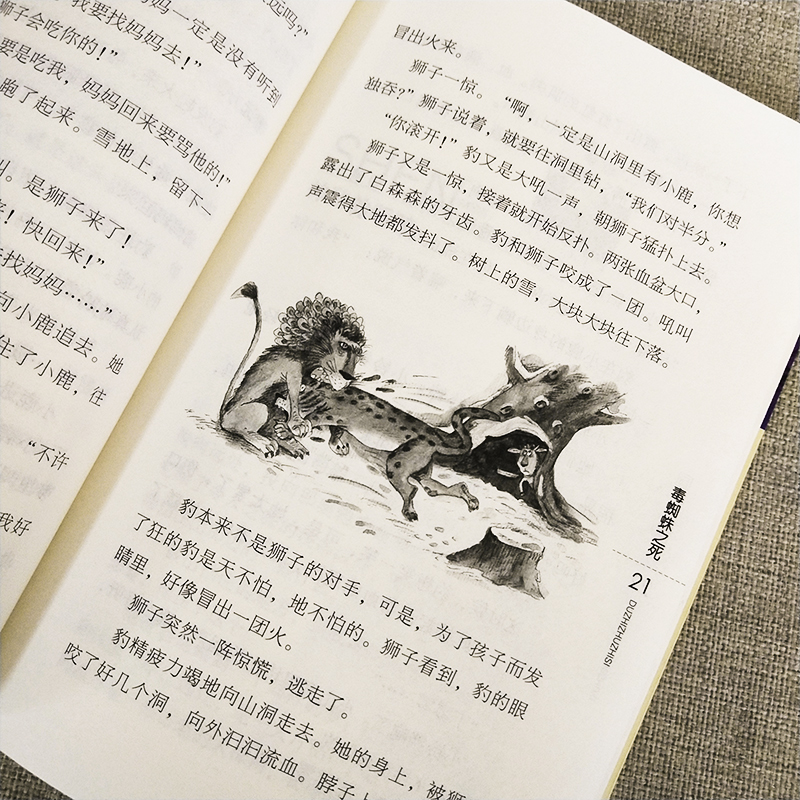 远吗？”
“我要找妈妈去！”
妈一定是没有听到
狮子会吃你的！”
要是吃我，妈妈回来要骂他的！”
跑了起来。雪地上，留下一
叫。是狮子来了！
来！快回来！”
去找妈妈……”
向小鹿追去。她
住了小鹿，往
“不许
我好
冒出火来。
狮子一惊。“啊，一定是山洞里有小鹿，你想
独吞？”狮子说着，就要往洞里钻，“我们对半分。”
“你滚开！”豹又是大吼一声，朝狮子猛扑上去。
狮子又是一惊，接着就开始反扑。两张血盆大口，
露出了白森森的牙齿。豹和狮子咬成了一团。吼叫
声震得大地都发抖了。树上的雪，大块大块往下落。
豹本来不是狮子的对手，可是，为了孩子而发
了狂的豹是天不怕，地不怕的。狮子看到，豹的眼
睛里，好像冒出一团火。
狮子突然一阵惊慌，逃走了。
豹精疲力竭地向山洞走去。她的身上，被狮
咬了好几个洞，向外汩汩流血。脖子上
毒蜘蛛之死
21
DUZHIZHUZHISI